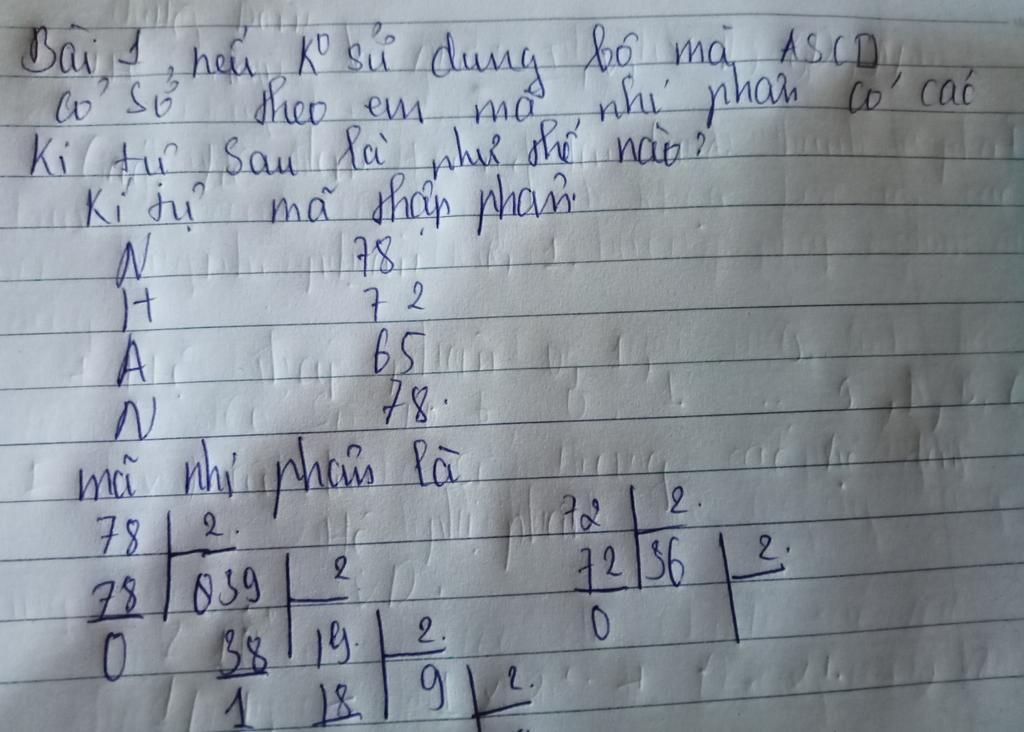 Bài 1, nếu K° sử dụng bộ mã ASCII
cơ số theo em mã nhị phân có các
Kí tự sau là như thế nào?
Kí tự mã thập phân.
N 78
H 72
A 65
N 78.
mã nhị phân là
78 2. 72 2.
78 039 2 72 36 2.
0 38 19. 2. 0
1 18 9 2.